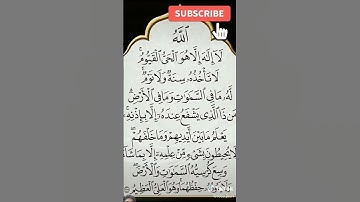 SUBSCRIBE
ٱللَّهُ
لَآ إِلَٰهَ إِلَّا هُوَ ٱلْحَىُّ ٱلْقَيُّومُ
لَا تَأْخُذُهُۥ سِنَةٌ وَلَا نَوْمٌ
لَّهُۥ مَا فِى ٱلسَّمَٰوَٰتِ وَمَا فِى ٱلْأَرْضِ
مَن ذَا ٱلَّذِى يَشْفَعُ عِندَهُۥٓ إِلَّا بِإِذْنِهِۦ
يَعْلَمُ مَا بَيْنَ أَيْدِيهِمْ وَمَا خَلْفَهُمْ
وَلَا يُحِيطُونَ بِشَىْءٍ مِّنْ عِلْمِهِۦٓ إِلَّا بِمَا شَآءَ
وَسِعَ كُرْسِيُّهُ ٱلسَّمَٰوَٰتِ وَٱلْأَرْضَ
حِفْظُهُمَا وَهُوَ ٱلْعَلِىُّ ٱلْعَظِيمُ